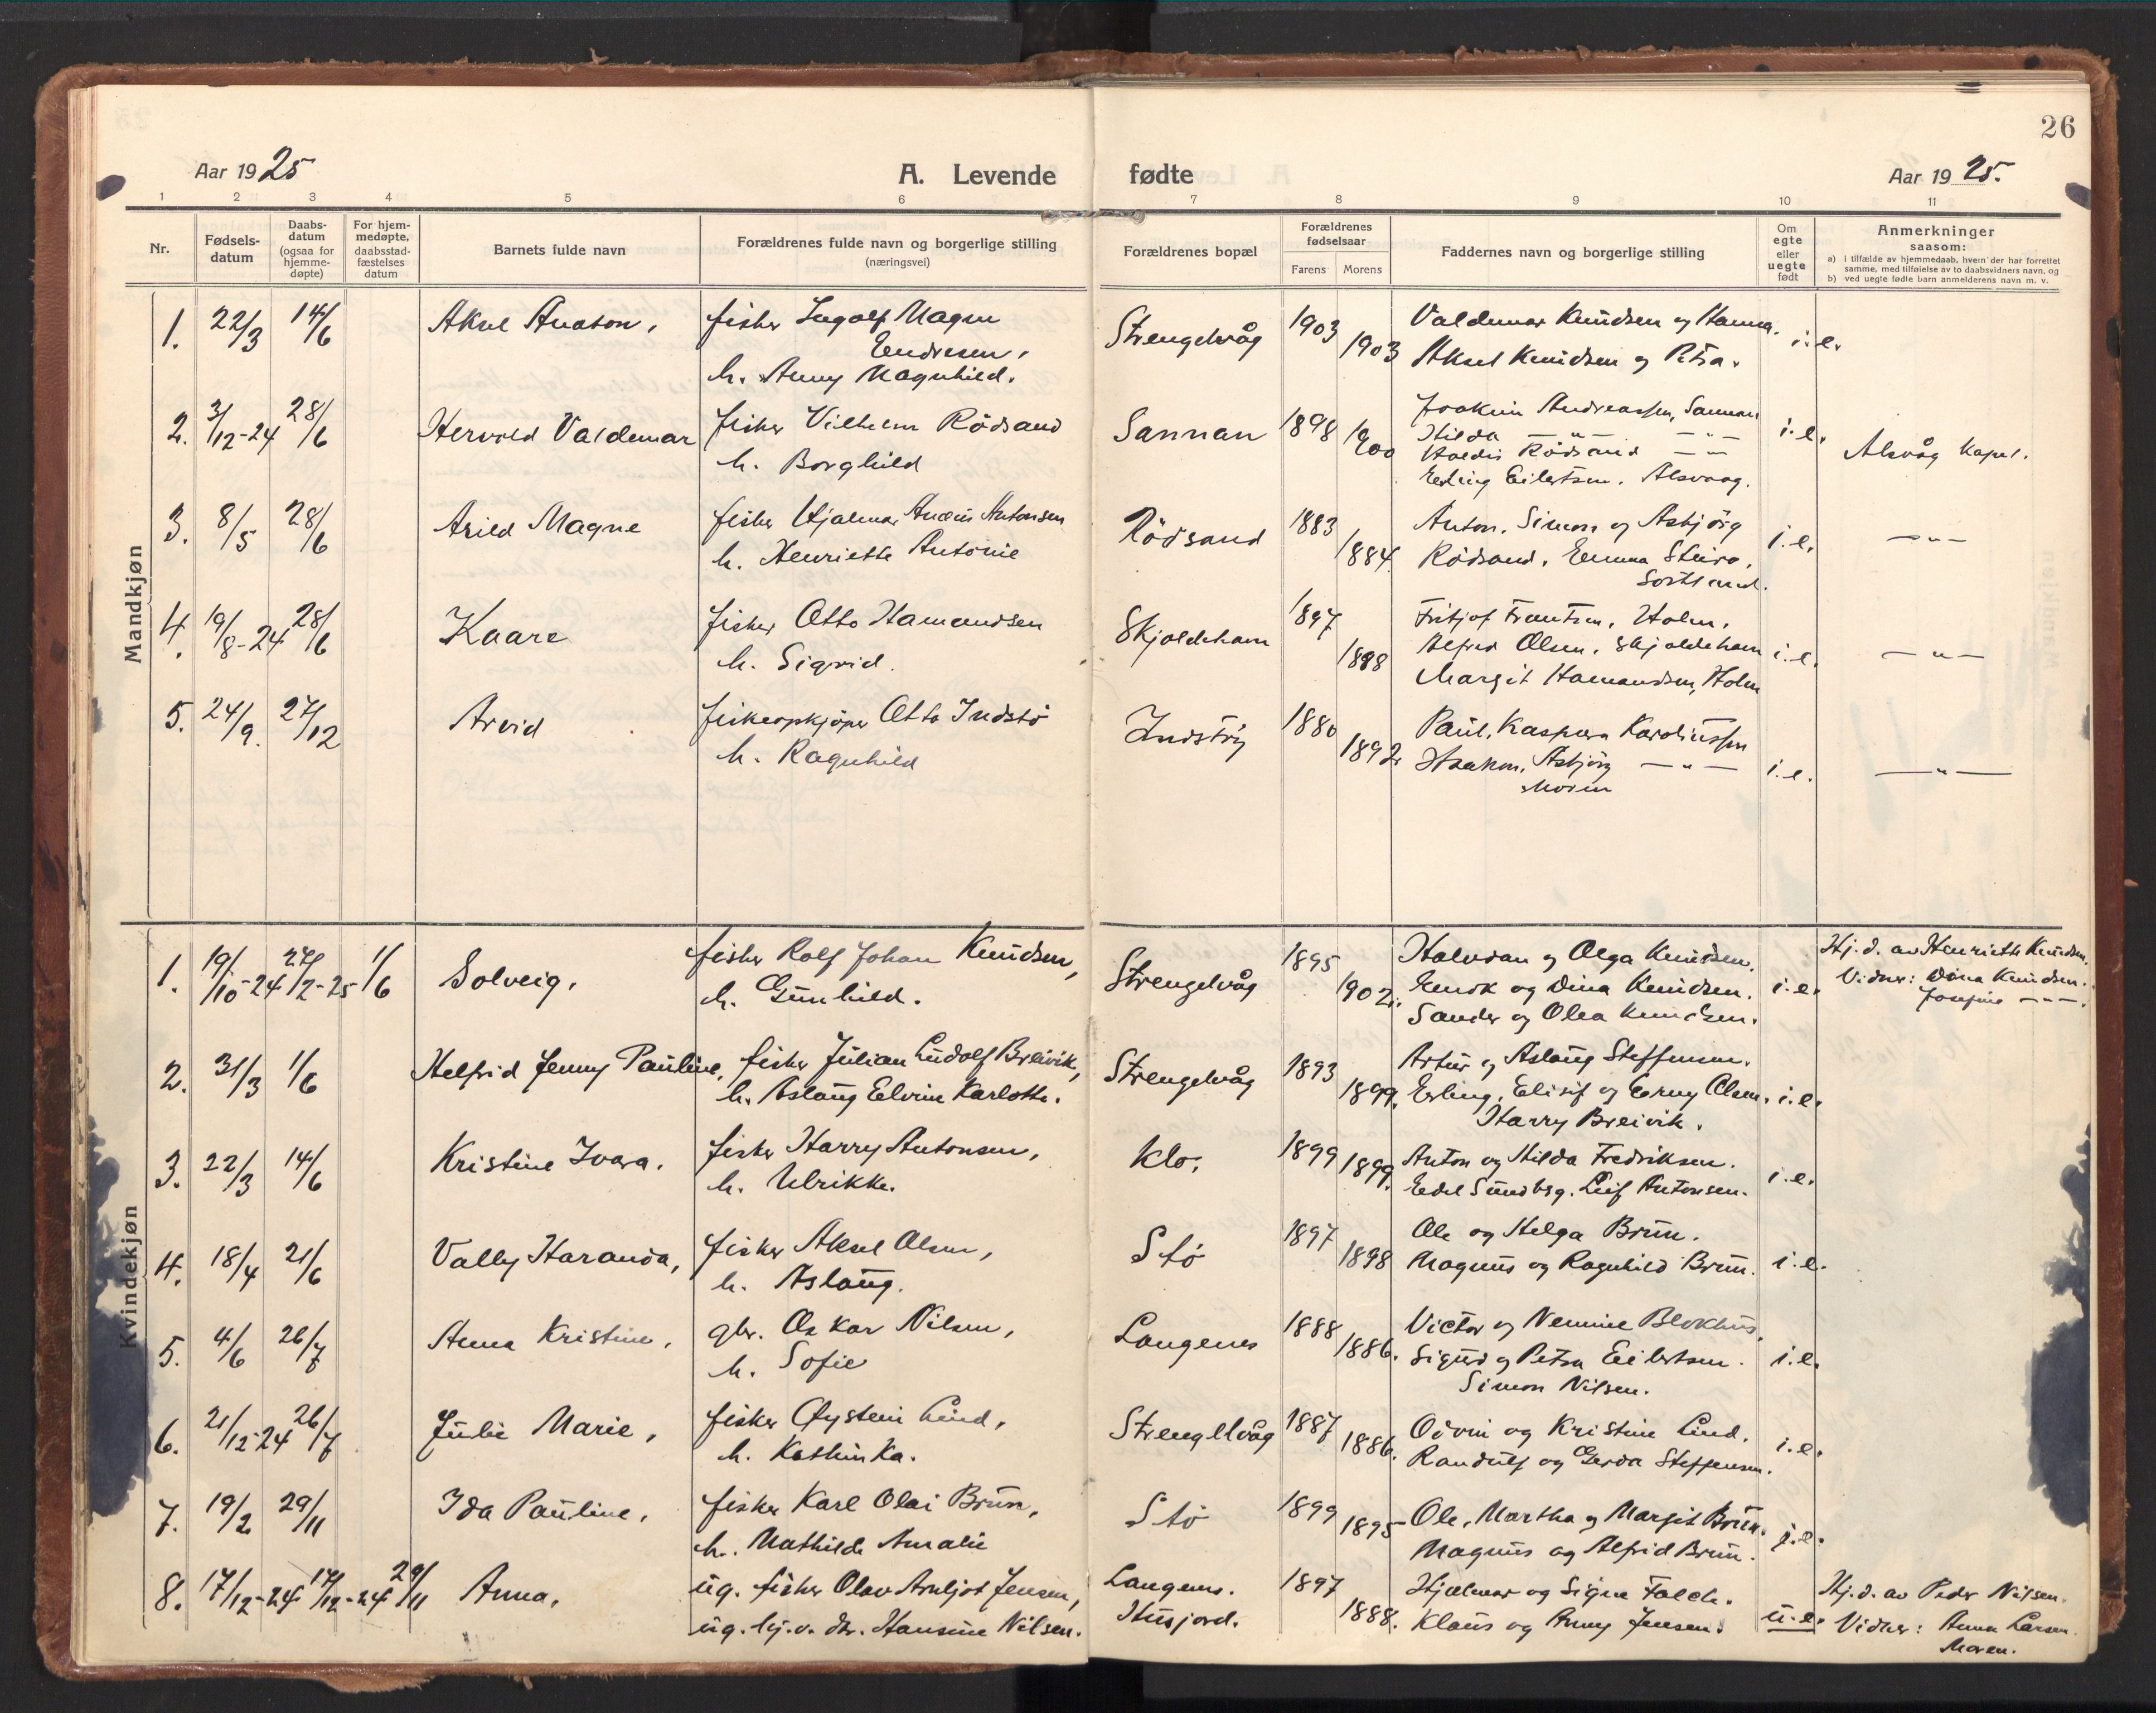 26
Aar 1925
A. Levende fødte
Aar 1925.
1 2 3 4 5 6 7 8 9 10 11
Nr.
Fødsels-
datum
Daabs-
datum
(ogsaa for
hjemme-
døpte)
For hjem-
medøpte,
daabsstad-
fæstelses
datum
Barnets fulde navn
Forældrenes fulde navn og borgerlige stilling
(næringsvei)
Forældrenes bopæl
Forældrenes
fødselsaar
Farens Morens
Faddernes navn og borgerlige stilling
Om
egte
eller
uegte
født
Anmerkninger
saasom:
a) i tilfælde av hjemmedaab, hvem der har forrettet
samme, med tilføielse av to daabsvidners navn, og
b) ved uegte fødte barn anmelderens navn m. v.
Mandkjøn
1. 22/3 14/6 Aksel Anston, fisker Ingolf Magne
Endresen,
h. Anny Magnhild.
Strengelvåg 1903 1903
Valdemar Knudsen og Hanna.
Aksel Knudsen og Petra.
i.e.
2. 3/12-24 28/6 Hervald Valdemar fisker Vilhelm Rödsand
h. Borghild
Sannan 1898 1900
Joakim Andreassen, Sannan
Hilda — " — — " —
Haldis Rödsand — " —
Erling Eilertsen. Alsvaag.
i.e.
Alsvåg kapel.
3. 8/5 28/6 Arild Magne fisker Hjalmar Antonsen
h. Henriette Antonie
Rödsand 1883 1884
Anton, Simon og Asbjörg
Rödsand. Emma Steiro,
Sortland.
i.e.
— " —
4. 19/8-24 28/6 Kaare fisker Otto Hamandsen
h. Sigrid.
Skjoldehavn 1897 1898
Fritjof Frantsen, Holm,
Alfred Olsen, Skjoldehavn
Margit Hamandsen, Holm
i.e.
— " —
5. 24/9. 27/12 Arvid fiskeopkjøper Otto Indstö
h. Ragnhild
Indstöy 1880 1892
Paul, Kaspara Karoliussen
Haakon, Asbjörg — " —
Moren
i.e.
— " —
Kvindekjøn
1. 19/10-24 27/2-25 1/6 Solveig, fisker Rolf Johan Knudsen,
h. Gunhild.
Strengelvåg 1895 1902.
Halvdan og Olga Knudsen.
Enok og Dina Knudsen.
Sander og Olea Knudsen.
i.e.
Hj.d. av Henriette Knudsen.
Vidner: Dina Knudsen.
Josefine — " —.
2. 31/3 1/6 Helfrid Jenny Pauline, fisker Julian Ludolf Breivik,
h. Aslaug Elvine Karlotte.
Strengelvåg 1893 1899.
Artur og Aslaug Steffensen.
Erling, Elisif og Erny Olsen.
Harry Breivik.
i.e.
3. 22/3 14/6 Kristine Ivara. fisker Harry Antonsen,
h. Ulrikke.
Klo. 1899 1899.
Anton og Hilda Fredriksen.
Edel Sundbsg. Leif Antonsen.
i.e.
4. 18/4 21/6 Vally Haranda, fisker Aksel Olsen,
h. Aslaug.
Stö 1897 1898
Ole og Helga Brun.
Magnus og Ragnhild Brun.
i.e.
5. 4/6 26/7 Anna Kristine, gbr. Oskar Nilsen,
h. Sofie
Langenes 1888 1886.
Victor og Nennie Blokhus.
Sigurd og Petra Eilertsen.
Simon Nilsen.
i.e.
6. 21/12-24 26/7 Julie Marie, fisker Öystein Lind,
h. Kathinka.
Strengelvåg 1887 1886.
Oivin og Kristine Lind.
Randulf og Gerda Steffensen.
i.e.
7. 19/2 29/11 Ida Pauline, fisker Karl Olai Brun,
h. Mathilde Amalie
Stö 1899 1895
Ole, Martha og Margit Brun.
Magnus og Alfrid Brun.
i.e.
8. 17/12-24 17/12-24 29/11 Anna, ug. fisker Olav Arnljot Jensen,
ug. hj.v. dtr. Hansine Nilsen.
Langenes.
Husjord.
1897 1888.
Hjalmar og Signe Falch.
Klaus og Anny Jensen.
u.e.
Hj.d. av Peder Nilsen.
Vidner: Anna Larsen.
Moren.